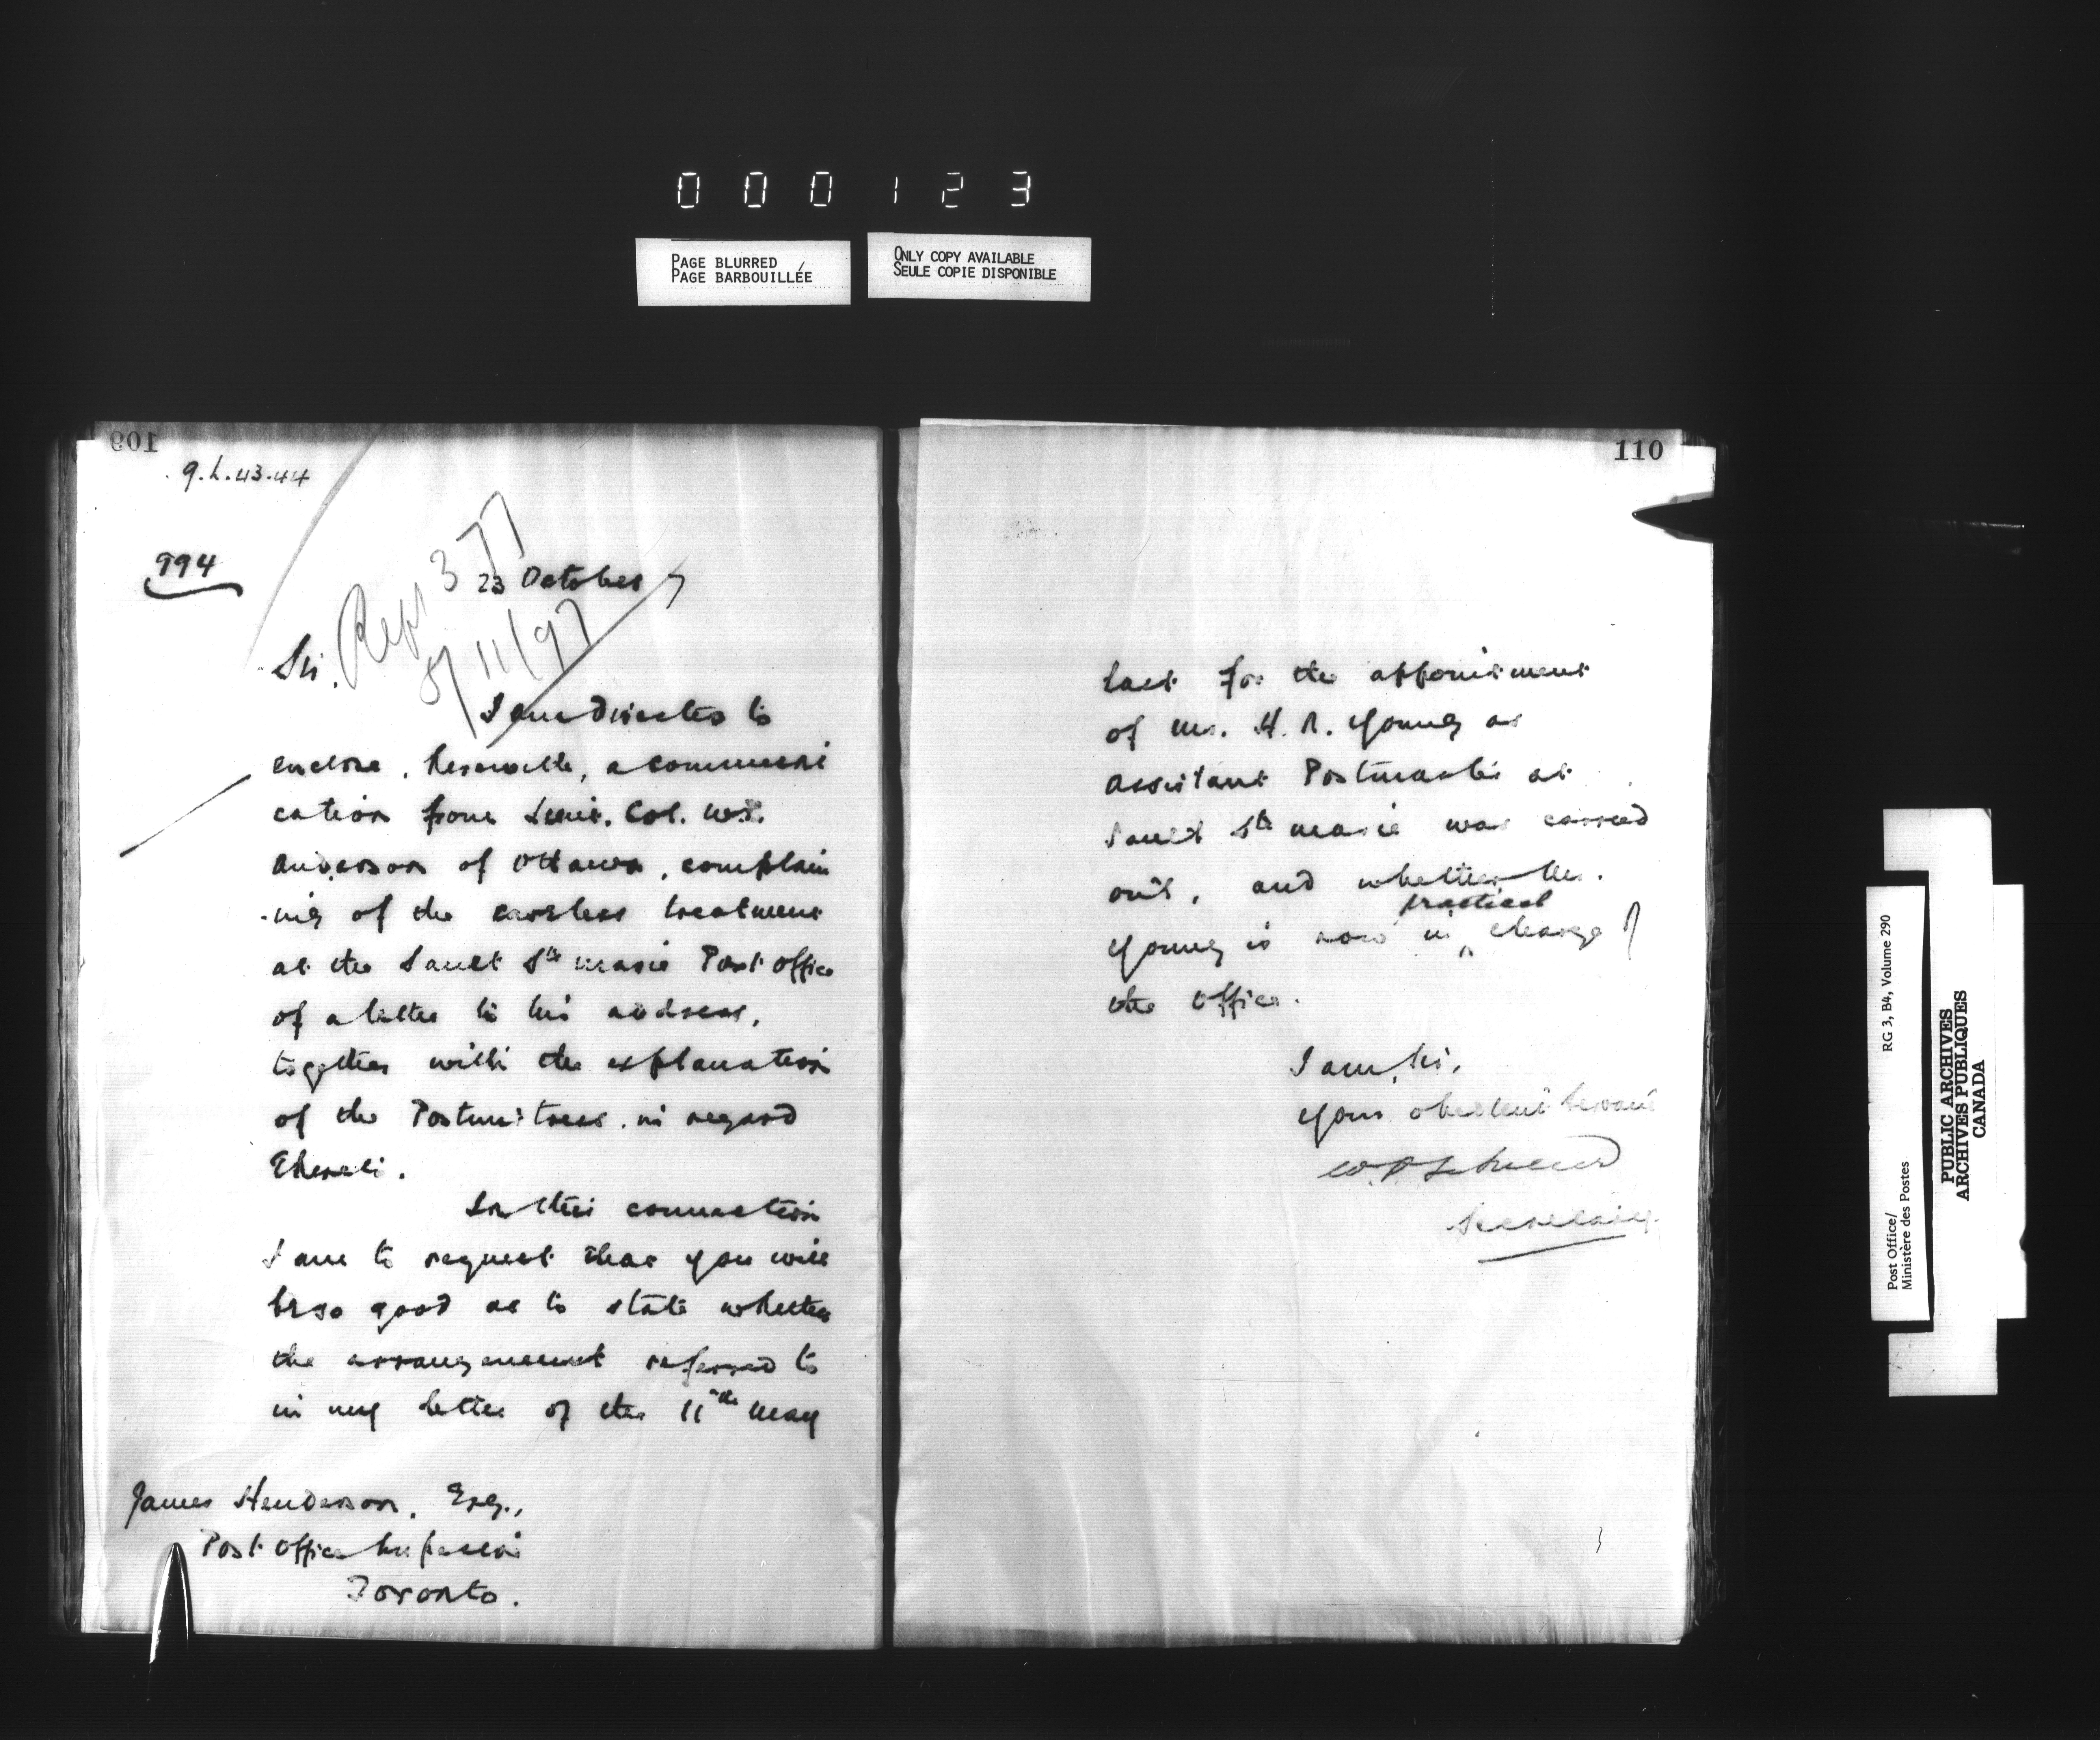 000123
PAGE BLURRED
PAGE BARBOUILLÉE
ONLY COPY AVAILABLE
SEULE COPIE DISPONIBLE
109
9.L.43.44
994
Rept 377
8/11/97
23 October 7
Sir,
I am directed to
enclose, herewith, a communi
cation from Lieut. Col. W.P.
Anderson of Ottawa, complain
-ing of the careless treatment
at the Sault Ste Marie Post Office
of a letter to his address,
together with the explanation
of the Postmistress in regard
thereto.
In this connection
I am to request that you will
be so good as to state whether
the arrangement referred to
in my letter of the 11th May
James Henderson, Esq.,
Post Office Inspector
Toronto.
110
last for the appointment
of Mr. H. R. Young as
Assistant Postmaster at
Sault Ste Marie was carried
out, and whether Mr.
practical
Young is now in charge of
the office.
I am, Sir,
Your obedient Servant
Secretary.
Post Office/
Ministère des Postes
RG 3, B4, Volume 290
PUBLIC ARCHIVES
ARCHIVES PUBLIQUES
CANADA